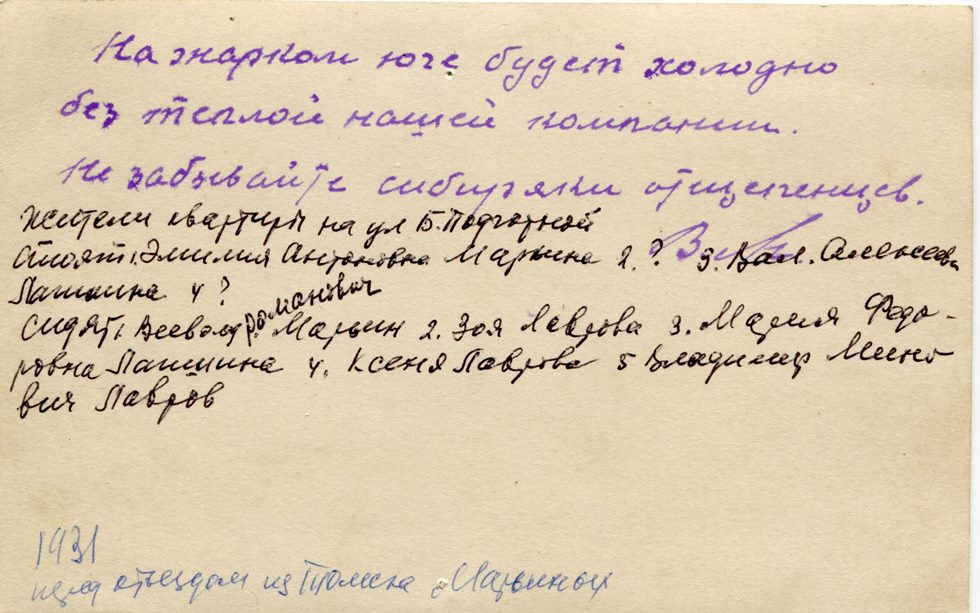 На жарком юге будет холодно
без теплой нашей компании.
Не забывайте сибиряки отщепенцев.
Жители квартиры на ул Б. Подгорной
Стоят: Эмилия Антоновна Марьина 2. ? 3. Вал. Алексеевн
Пашкина 4 ?
Сидят: Всеволод Романович Марьин 2. Зоя Лаврова 3. Мария Федо-
ровна Пашкина 4. Ксеня Лаврова 5 Владимир Мино
вич Лавров
1931
перед отъездом из Томска Марьиных